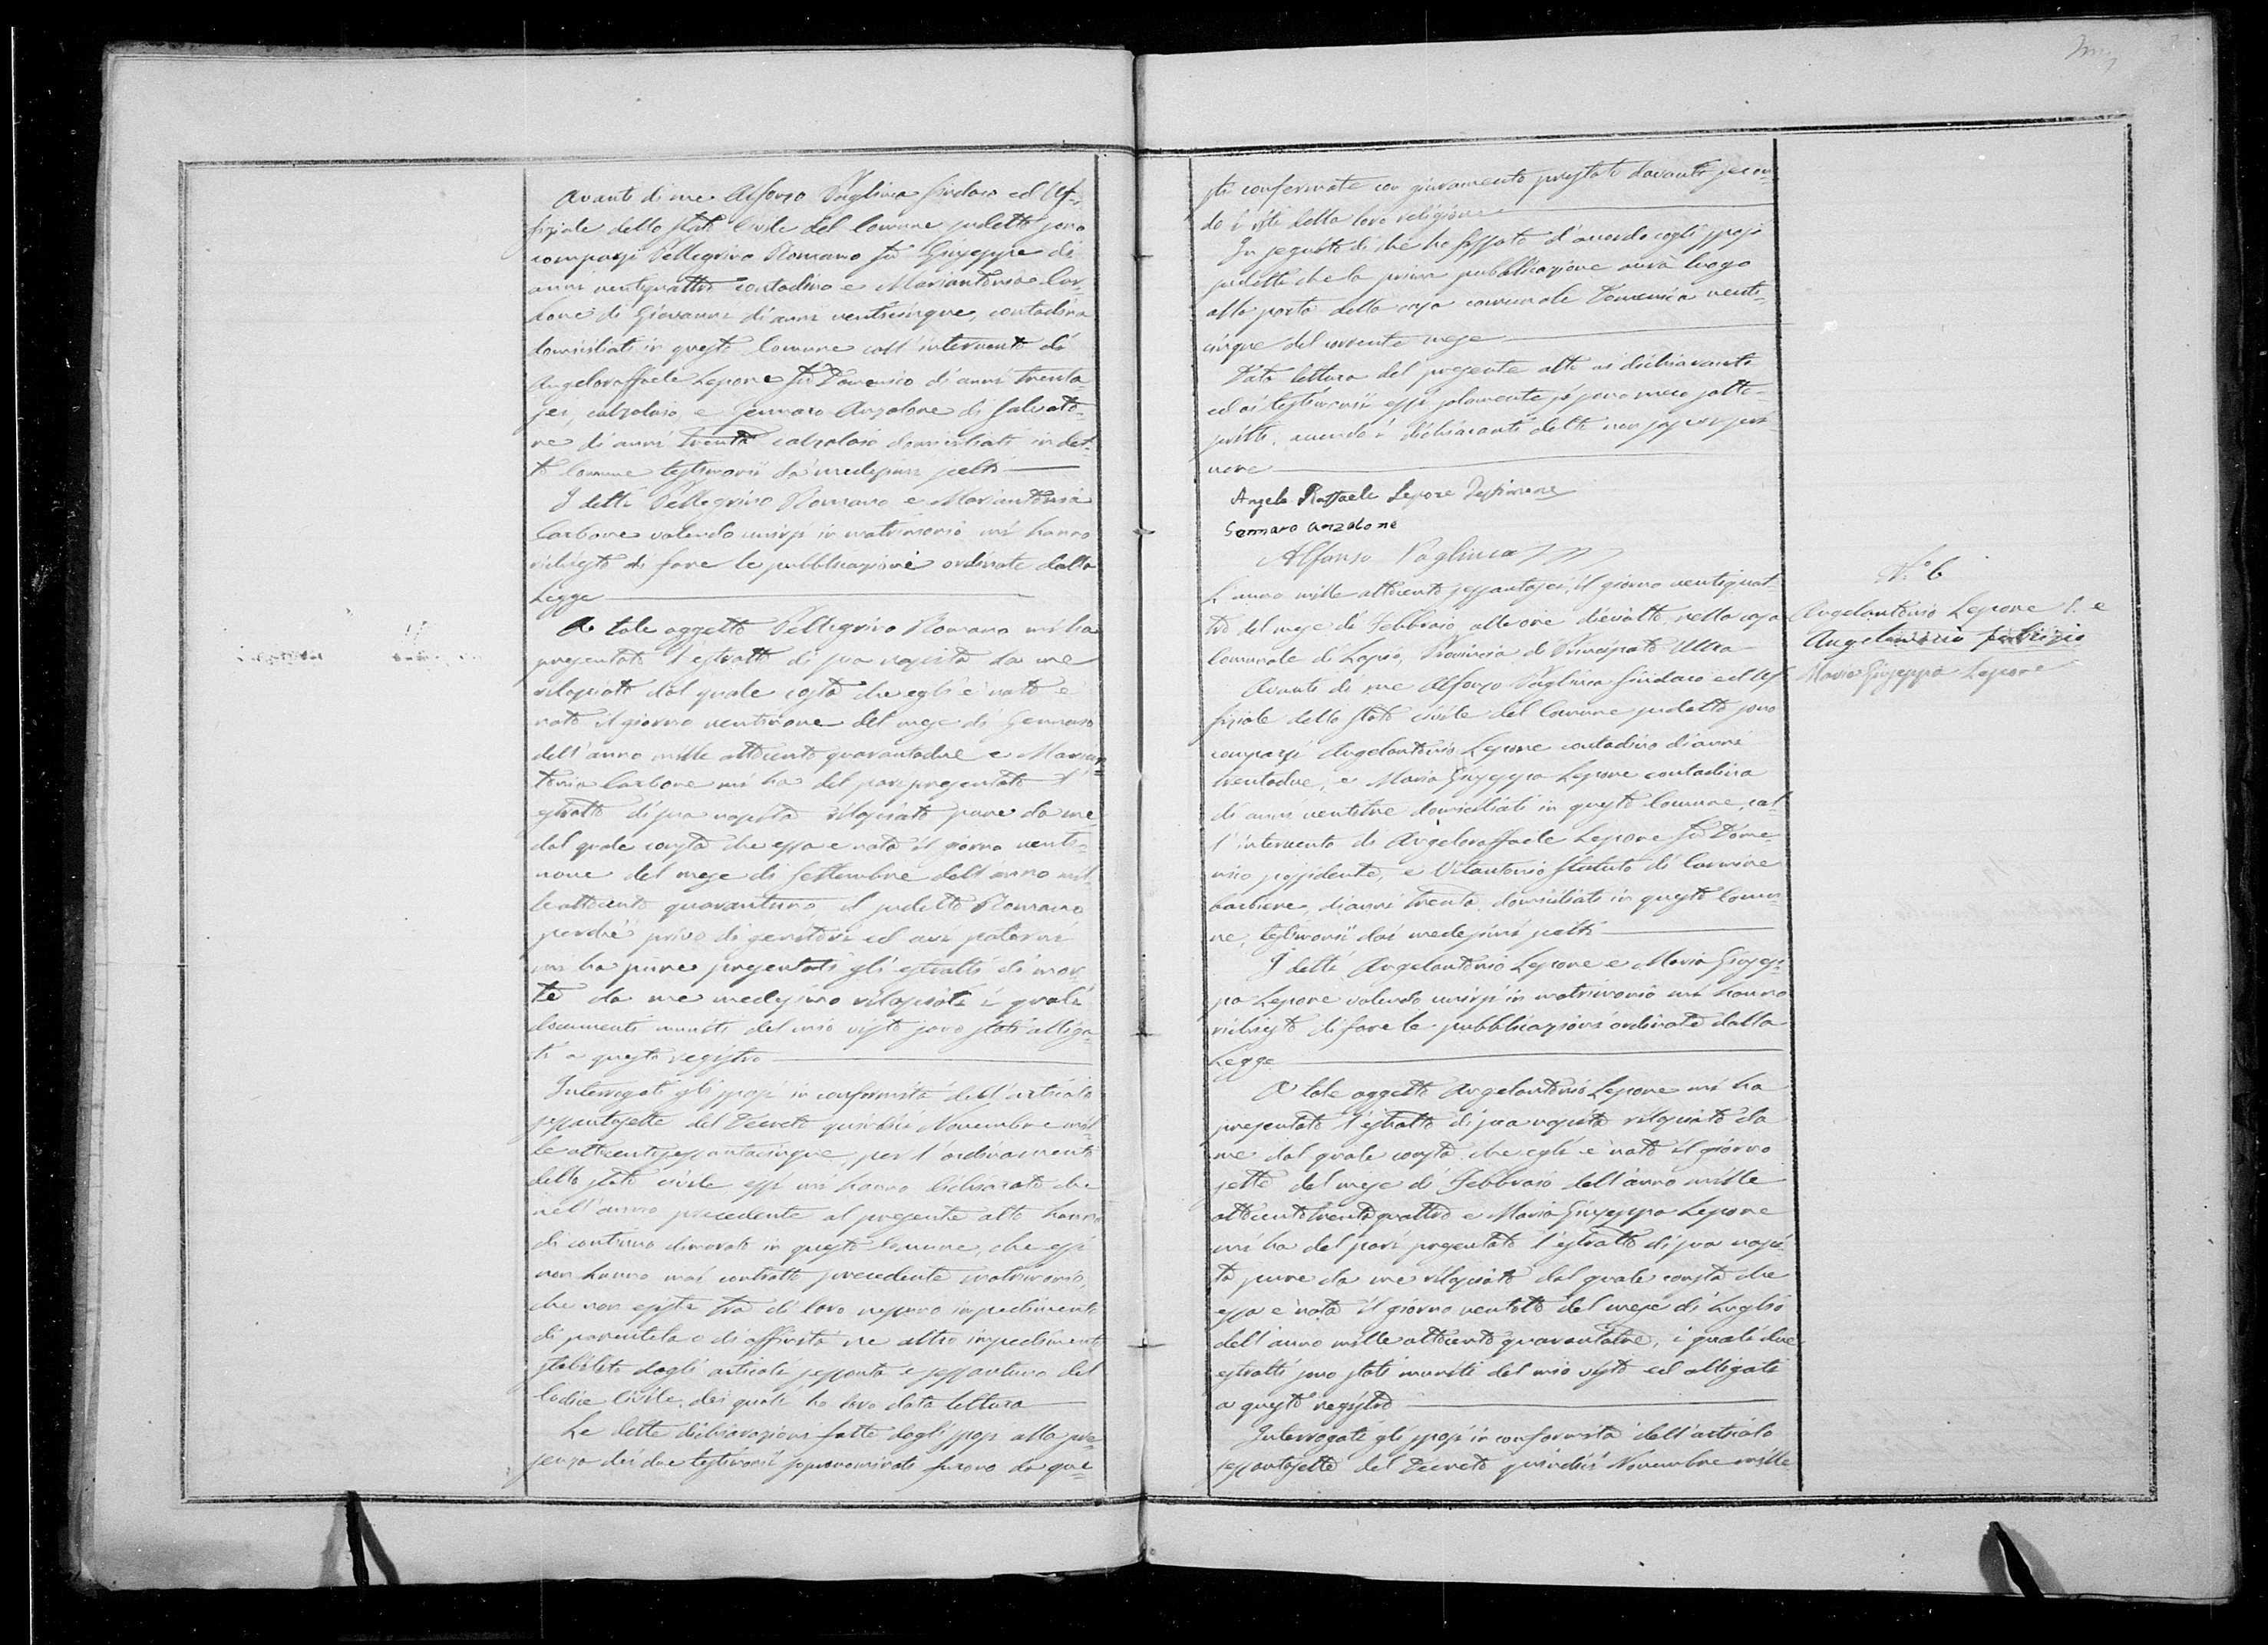 Avanti di me Alfonso Pagliuca Sindaco ed Uf-
fiziale dello Stato Civile del Comune sudetto sono
comparsi Pellegrino Romano fu Giuseppe di
anni ventiquattro contadino e Mariantonia Car-
bone di Giovanni di anni venticinque, contadina
domiciliati in questo Comune coll'intervento di
Angeloraffaele Lepore fu Domenico di anni trenta-
sei, calzolaio, e Gennaro Anzalone di Salvato-
re di anni trenta calzolaio domiciliati in det-
to Comune testimonii da' medesimi scelti
I detti Pellegrino Romano e Mariantonia
Carbone volendo unirsi in matrimonio mi hanno
richiesto di fare le pubblicazioni ordinate dalla
Legge
A tale oggetto Pellegrino Romano mi ha
presentato l'estratto di sua nascita da me
rilasciato dal quale costa che egli è nato è
nato il giorno ventinove del mese di Gennaio
dell'anno mille ottocento quarantadue e Marian-
tonia Carbone mi ha del pari presentato l'
estratto di sua nascita rilasciato pure da me
dal quale consta che essa è nata il giorno venti-
nove del mese di Settembre dell'anno mil-
le ottocento quarantuno, il sudetto Romano
perché privo di genitori ed avi paterni
mi ha pure presentati gli estratti di mor-
te da me medesimo rilasciati i quali
documenti muniti del mio visto sono stati alliga-
ti a questo registro
Interrogati gli sposi in conformità dell'articolo
sessantasette del Decreto quindici Novembre mil-
le ottocentosessantacinque, per l'ordinamento
dello stato civile essi mi hanno dichiarato che
nell'anno precedente al presente atto hanno
di continuo dimorato in questo Comune, che essi
non hanno mai contratto precedente matrimonio,
che non esiste tra di loro nessuno impedimento
di parentela o di affinità ne altro impedimento
stabilito dagli articoli sessanta e sessantuno del
Codice Civile, dei quali ho loro data lettura
Le dette dichiarazioni fatte dagli sposi alla pre-
senza dei due testimonii sopranominati furono da que-
sti confermate con giuramento prestato davanti secon-
do i riti della loro religione
In seguito di che ho fissato d'accordo cogli sposi
sudetti che la prima pubblicazione avrà luogo
alla porta della casa comunale Domenica venti-
cinque del corrente mese
Data lettura del presente atto ai dichiaranti
ed ai testimonii essi solamente si sono meco sotto-
scritti, avendo i dichiaranti detto non saper scri-
vere
Angelo Raffaele Lepore Testimone
Gennaro Anzalone
Alfonso Pagliuca
L'anno mille ottocento sessantasei, il giorno ventiquat-
tro del mese di Febbraio alle ore dieciotto, nella casa
Comunale di Lapio, Provincia di Principato Ultra
N.° 6
Angelantonio Lepore e
Maria Giuseppa Lepore
Avanti di me Alfonso Pagliuca Sindaco ed Uf-
fiziale dello Stato civile del Comune sudetto sono
comparsi Angelantonio Lepore contadino di anni
trentadue, e Maria Giuseppa Lepore contadina
di anni ventidue domiciliati in questo Comune, col-
l'intervento di Angeloraffaele Lepore fu Dome-
nico possidente, e Vitantonio Statuto di Carmine
barbiere, di anni trenta domiciliati in questo Comu-
ne, testimonii dai medesimi scelti
I detti Angelantonio Lepore e Maria Giusep-
pa Lepore volendo unirsi in matrimonio mi hanno
richiesto di fare le pubblicazioni ordinate dalla
Legge
A tale oggetto Angelantonio Lepore mi ha
presentato l'estratto di sua nascita rilasciato da
me dal quale consta che egli è nato il giorno
sette del mese di Febbraio dell'anno mille
ottocento trentaquattro e Maria Giuseppa Lepore
mi ha del pari presentato l'estratto di sua nasci-
ta pure da me rilasciato dal quale consta che
essa è nata il giorno ventotto del mese di Luglio
dell'anno mille ottocento quarantatre, i quali due
estratti sono stati muniti del mio visto ed alligati
a questo registro
Interrogati gli sposi in conformità dell'articolo
sessantasette del Decreto quindici Novembre mille